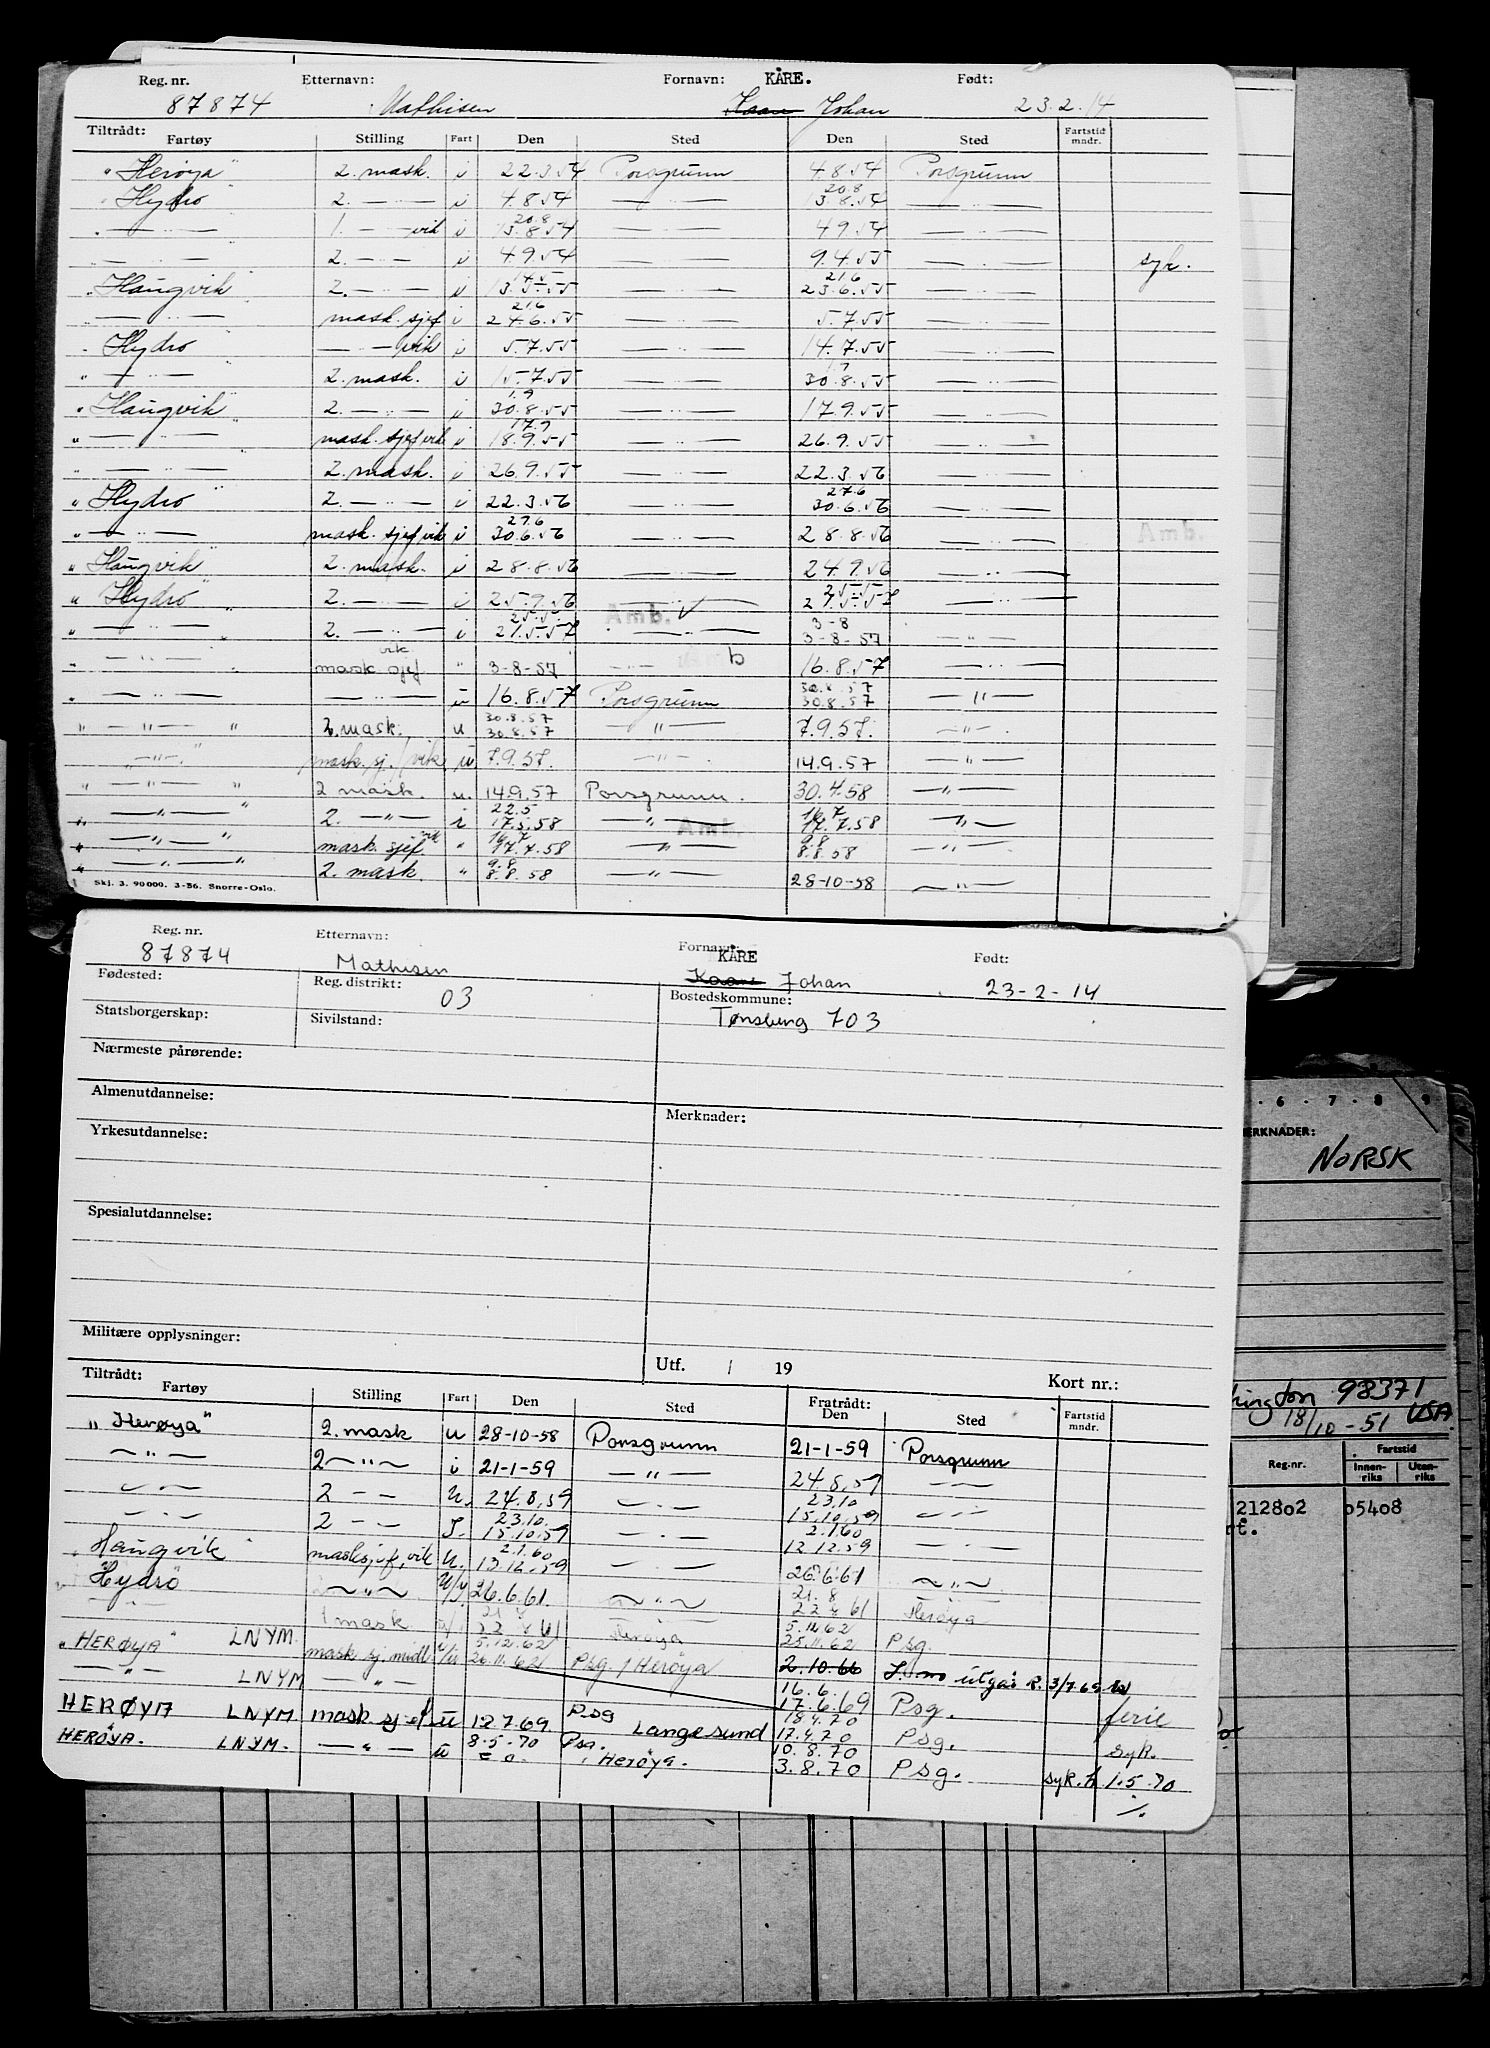 Reg. nr. Etternavn: Fornavn: KÅRE. Født:
87874 Mathisen Johan 23.2.14
Tiltrådt:
Fartøy Stilling Fart Den Sted Den Sted Fartstid mndr.
"Herøya" 2. mask. i 22.3.54 Porsgrunn 4.8.54 Porsgrunn
"Hydro" 2. — " — i 4.8.54 — " — 20.8 13.8.54 — " —
" — " — 1. — " — vik i 20.8 13.8.54 — " — 4.9.54 — " —
— " — 2. — " — i 4.9.54 — " — 9.4.55 — " — syk.
"Haugvik" 2. — " — i 14.5 13.5.55 — " — 21.6 23.6.55 — " —
— " — mask. sjef i 21.6 24.6.55 — " — 5.7.55 — " —
" Hydro — " — vik i 5.7.55 — " — 14.7.55 — " —
" — " — 2. mask. i 15.7.55 — " — 30.8.55 — " —
"Haugvik" 2. — " — i 1.9 30.8.55 — " — 17.9.55 — " —
" — " — mask. sjef vik i 17.9 18.9.55 — " — 26.9.55 — " —
" — " — 2. mask. i 26.9.55 — " — 22.3.56 — " —
"Hydro" 2. — " — i 22.3.56 — " — 27.6 30.6.56 — " —
" — " — mask. sjef vik i 27.6 30.6.56 — " — 28.8.56 — " — Amb.
"Haugvik" 2. mask. i 28.8.56 — " — 24.9.56 — " —
"Hydro" 2. — " — i 25.9.56 — " — 25.5 27.5.57 — " —
" — " — 2. — " — i 25.5 27.5.57 Amb. — " — 3-8 3-8-57 — " —
" — " — mask sjef vik " 3-8-57 — " — Amb 16.8.57 — " —
" — " — — " — u 16.8.57 Porsgrunn 30.8.57 30.8.57 — " —
" — " — " 2. mask. u 30.8.57 30.8.57 — " — 7.9.57. — " —
— " — mask. sj. /vik u 7.9.57. — " — 14.9.57 — " —
" — " — " 2 mask. u. 14.9.57 Porsgrunn. 30.4.58 — " —
" — " — " 2. — " — i 22.5 17.5.58 — " — Amb. 16.7 17.7.58 — " —
" — " — " mask. sjef vik " 16.7 17.7.58 — " — 9.8 8.8.58 — " —
" — " — " 2. mask. " 9.8 8.8.58 — " — 28-10-58 — " —
Skj. 3. 90000. 3-56. Snorre-Oslo.
Reg. nr. Etternavn: Fornavn: KÅRE Født:
87874 Mathisen Johan 23-2-14
Fødested: Reg. distrikt: 03 Bostedskommune:
Statsborgerskap: Sivilstand: Tønsberg 703
Nærmeste pårørende:
Almenutdannelse: Merknader:
Yrkesutdannelse:
Spesialutdannelse:
Militære opplysninger:
Utf. / 19 Kort nr.:
Tiltrådt: Fratrådt:
Fartøy Stilling Fart Den Sted Den Sted Fartstid mndr.
"Herøya" 2. mask u 28-10-58 Porsgrunn 21-1-59 Porsgrunn
— " — 2 — " — i 21-1-59 — " — 24.8.59 — " —
— " — 2 — " — U. 24.8.59 — " — 23.10 15.10.59 — " —
— " — 2 — " — I. 23.10. 15.10.59 — " — 2.1.60 12.12.59 — " —
"Haugvik" masksjef, vik U. 2.1.60 13.12.59 — " — 26.6.61 — " —
"Hydro — " — U/I. 26.6.61. — " — 21.8 22.8.61 Herøya
— " — 1 mask 21.8 22.8.61 Herøya 5.12.62 25.11.62 Psg.
"HERØYA" LNYM. mask sj. midl. u/i 5.12.62 26.11.62 Psg. / Herøya 2.10.66
— " — LNYM — " — 16.6. 17.6.69 Psg. ferie
HERØYA LNYM mask. sjef u 12.7.69. Psg Langesund 18.4.70 17.4.70 Psg. syk.
HERØYA. LNYM. — " — u 8.5.70 Psg. / Herøya. 10.8.70 3.8.70 Psg. syk. f. 1.5.70
6 · 7 · 8 · 9
MERKNADER:
NORSK
98371
18/10-51 USA
Reg.nr. Fartstid
Innenriks Utenriks
212802 05408